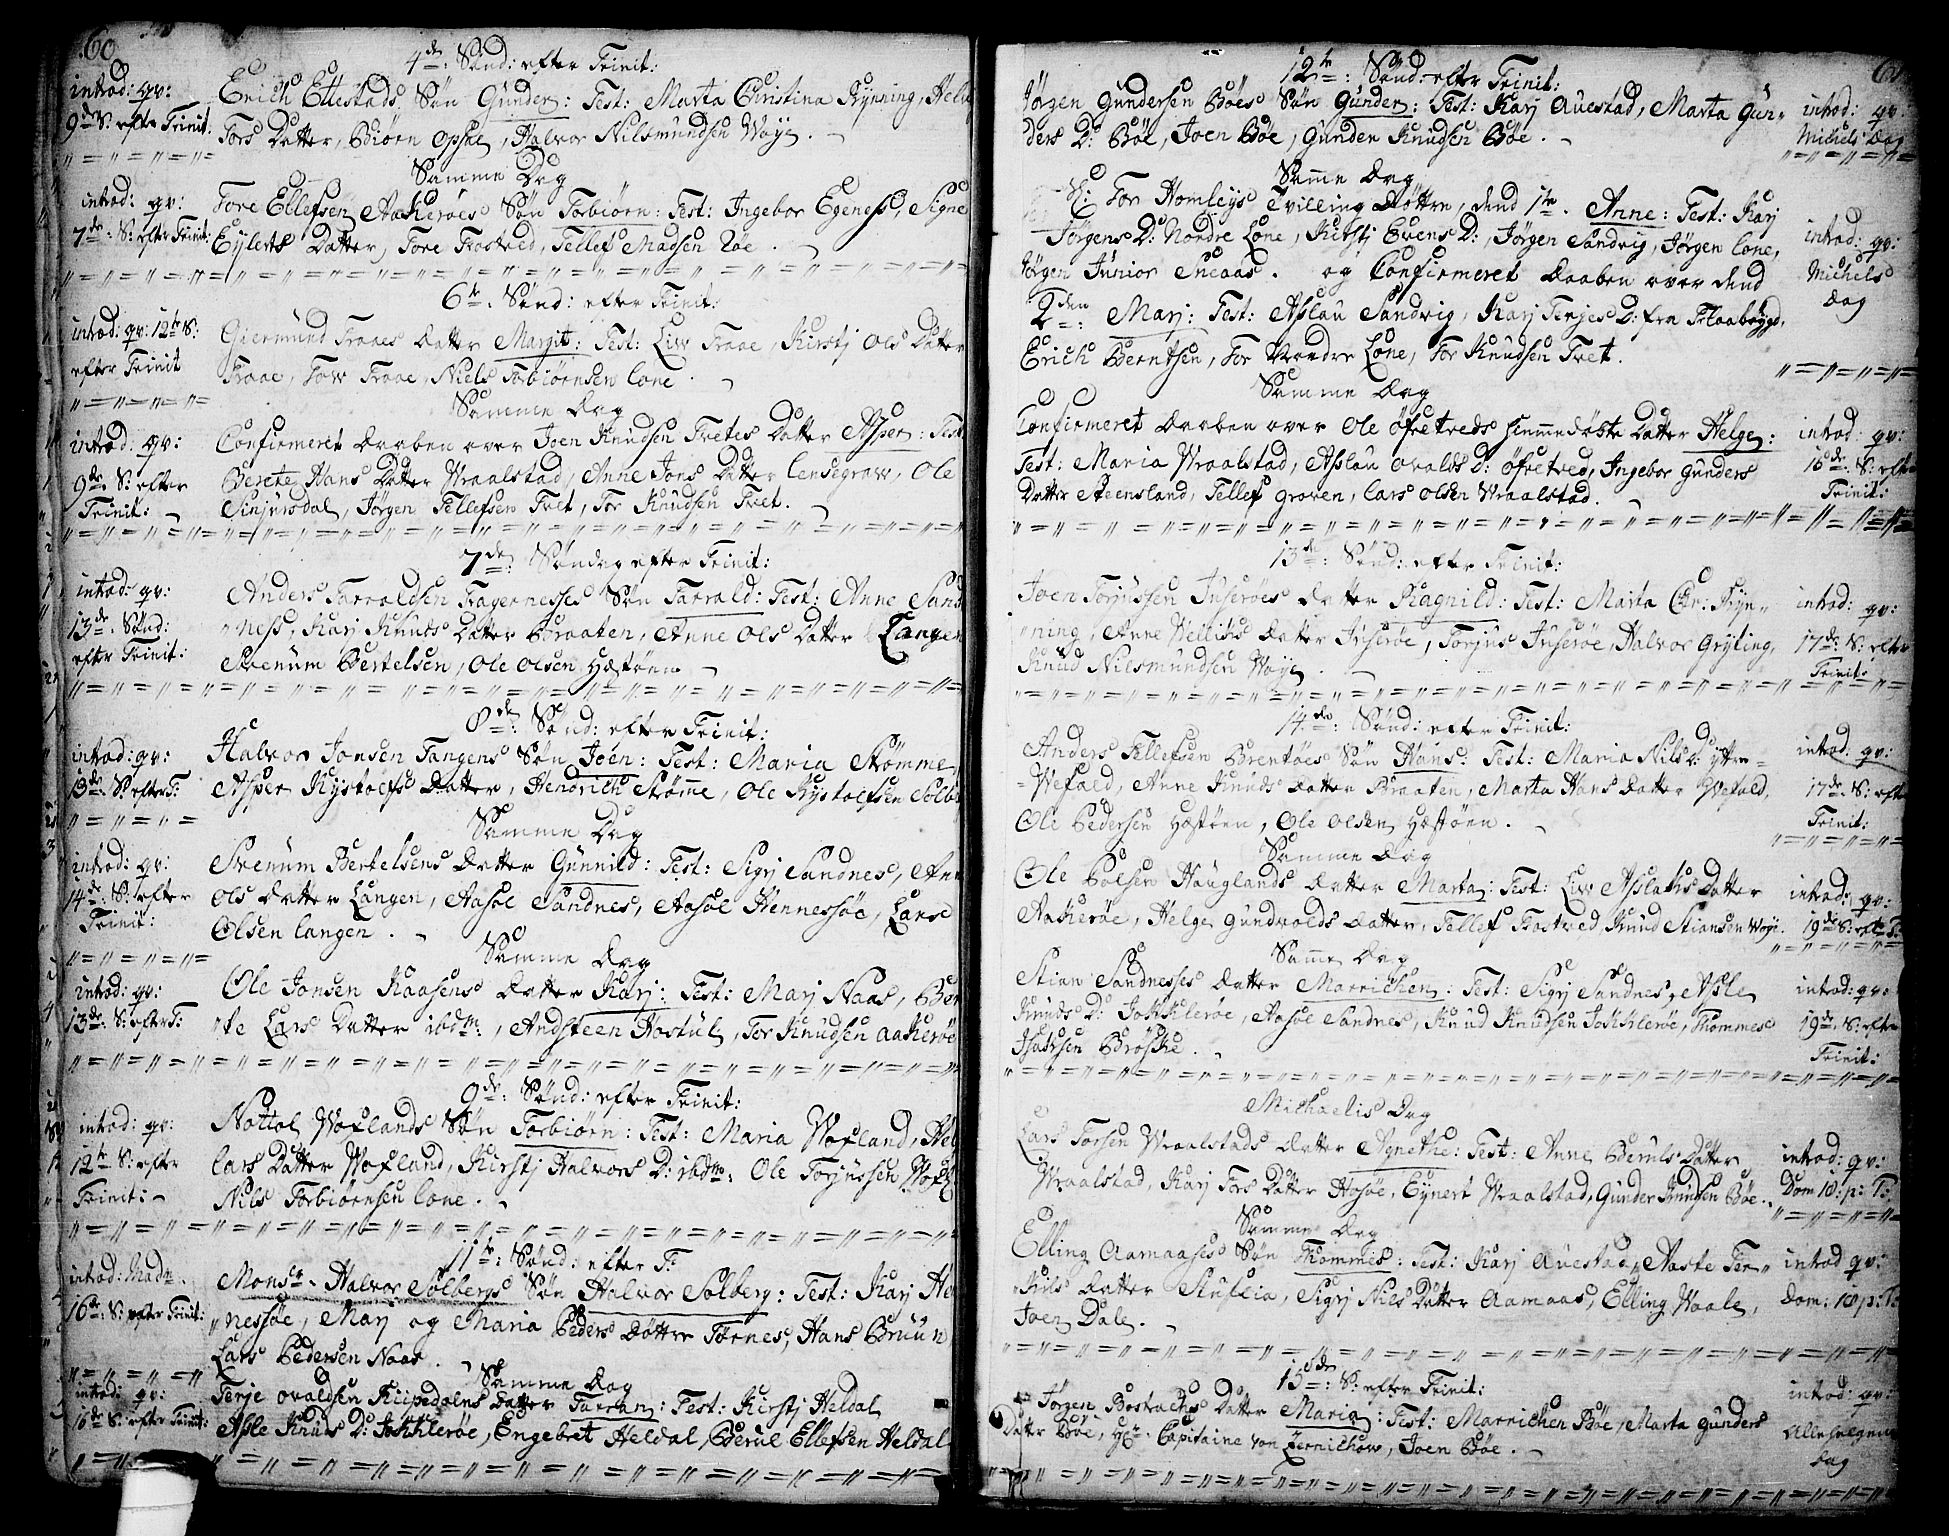 60
4de: Sønd: efter Trinit:
introd: qv:
9de S: efter Trinit:
Erich Ettestads Søn Gunder: Test: Marta Christina Rynning,
Tors Datter, Biørn Opsal, Halvor Nilsmundsen Woye.
Samme Dag
introd: qv:
7de: S: efter Trinit:
Tore Ellefsen Aakerøes Søn Torbiørn: Test: Ingebor Egeness, Signe
Eylerts Datter, Tore Trostved, Tellef Madsen Røe.
6te Sønd: efter Trinit:
introd: qv: 12te S:
efter Trinit
Giermund Traaes Datter Margit: Test: Liv Traae, Kirstj Ols Datter
Traae, Tow Traae, Niels Torbiørnsen Lone.
Samme Dag
introd: qv:
9de S: efter
Trinit:
Confirmeret Daaben over Joen Knudsen Tvetes Datter Asper: Test:
Berete Hans Datter Wraalstad, Anne Jons Datter Lensegrav, Ole
Sinjursdal, Jørgen Tellefsen Tvet, Tor Knudsen Tvet.
7de: Søndag efter Trinit:
introd: qv:
13de Sønd:
efter Trinit:
Anders Tarraldsen Fragernesses Søn Tarrald: Test: Anne Sand
ness, Karj Knuds Datter Braaten, Anne Ols Datter Langen
Svenum Bertelsen, Ole Olsen Hæstøen
8de: Sønd: efter Trinit:
introd: qv:
13de S: efter T:
Halvor Jonsen Tangens Søn Joen: Test: Maria Strømme,
Asper Kystolfs Datter, Hendrich Strømme, Ole Kystolfsen Solb
Samme Dag
introd: qv:
14de: S: efter
Trinit:
Svenum Bertelsens Datter Gunnild: Test: Sigrj Sandnes, Ann
Ols Datter Langen, Aasol Sandnes, Aasol Hennessøe, Lars
Olsen Langen.
Samme Dag
introd: qv:
13de: S: efter T:
Ole Jonsen Kaasens Datter Karj: Test: Marj Naas, Ber
te Lars Datter ibdm:, Andsteen Hostul, Tor Knudsen Aakerøe
9de: Sønd: efter Trinit:
introd: qv:
12te S: efter
Trinit:
Nottol Woxlands Søn Torbiørn: Test: Maria Woxland, Hel
Lars Datter Woxland, Kirstj Halvors D: ibdm: Ole Torjussen Woxl
Nils Torbiørnsen Lone.
11te: Sønd: efter T:
introd: Madm.
16de: S: efter Trinit:
Monsr. Halvor Solbergs Søn Halvor Solberg: Test: Karj He
nessøe, Marj og Maria Peders Døttre Tornes, Hans Bruun
Lars Pedersen Naas.
Samme Dag
introd: qv:
16de S: efter Trinit:
Terje Ovaldsen Kiipedalens Datter Tarran: Test: Kirstj Heldal
Asle Knuds D: Jokkkelerøe, Engebret Heldal, Berul Ellefsen Heldal
61
12te: Sønd: efter Trinit:
Jørgen Gundersen Bøes Søn Gunder: Test: Karj Auestad, Marta Gun
ders D: Bøe, Joen Bøe, Gunder Knudsen Bøe.
introd: qv:
Michels Dag
Samme Dag
Tor Homleys Tvilling Døttre, dend 1te. Anne: Test: Karj
Jørgens D: Nordre Lone, Kirstj Evens D:, Jørgen Sandvig, Jørgen Lone,
Jørgen Junior Sneaas. og Confirmeret Daaben over dend
2den: Marj: Test: Aslau Sandvig, Karj Terjes D: fra Flaabøygd,
Erich Berntsen, Tor Nordre Lone, Tor Knudsen Tvet.
introd: qv:
Michels
Dag
Samme Dag
Confirmeret Daaben over Ole Øfvetveds hiemmedøbte Datter Helge:
Test: Maria Wraalstad, Aslau Ovalds D: Øfvetved, Ingebor Gunders
Datter Steensland, Tellef Groven, Lars Olsen Wraalstad.
introd: qv:
16de. S: efter
Trinit:
13de: Sønd: efter Trinit:
Joen Torjussen Juserøes Datter Ragnild: Test: Marta Chr: Ryn
ning, Anne Datter Juserøe, Torjus Juserøe, Halvor Gryting,
Knud Nilsmundsen Woye.
introd: qv:
17de: S: efter
Trinit:
14de: Sønd: efter Trinit:
Anders Tellefsen Brentøes Søn Hans: Test: Maria Nils D: Yttre
Wefald, Anne Knuds Datter Braaten, Marta Hans Datter Wefald,
Ole Pedersen Hæstøen, Ole Olsen Hæstøen.
introd: qv:
17de. S: efter
Trinit:
Samme Dag
Ole Polsen Hauglands Datter Marta: Test: Liv Aslachs Datter
Aakerøe, Helge Gundvalds Datter, Tellef Trostved, Knud Stiansen Woye.
introd: qv:
19de S: eft: T:
Samme Dag
Stian Sandnesses Datter Marrichen: Test: Sigrj Sandnes, Asle
Knuds D: Jokkkelerøe, Aasol Sandnes, Knud Knudsen Jokkkelerøe, Thommes
Isaksen Brøske.
introd: qv:
19de. S: efter
Trinit:
Michaelis Dag
Lars Torsen Wraalstads Datter Agnethe: Test: Anne Beruls Datter
Wraalstad, Karj Tors Datter Hosøe, Eynert Wraalstad, Gunder Knudsen Bøe.
introd: qv:
Dom 18: p: T:
Samme Dag
Elling Aamaases Søn Thommes: Test: Karj Auestad, Aaste Ter
Datter Stuflia, Sigrj Nils Datter Aamaas, Elling Waale,
Joen Dale.
introd qv:
Dom: 18 p: T:
15de: S: efter Trinit:
Jørgen Bostrachs Datter Maria: Test: Marrichen Bøe, Marta Gunders
Datter Bøe, Hr. Capitaine von Zernichow, Joen Bøe.
introd: qv:
Allehelgens
Dag